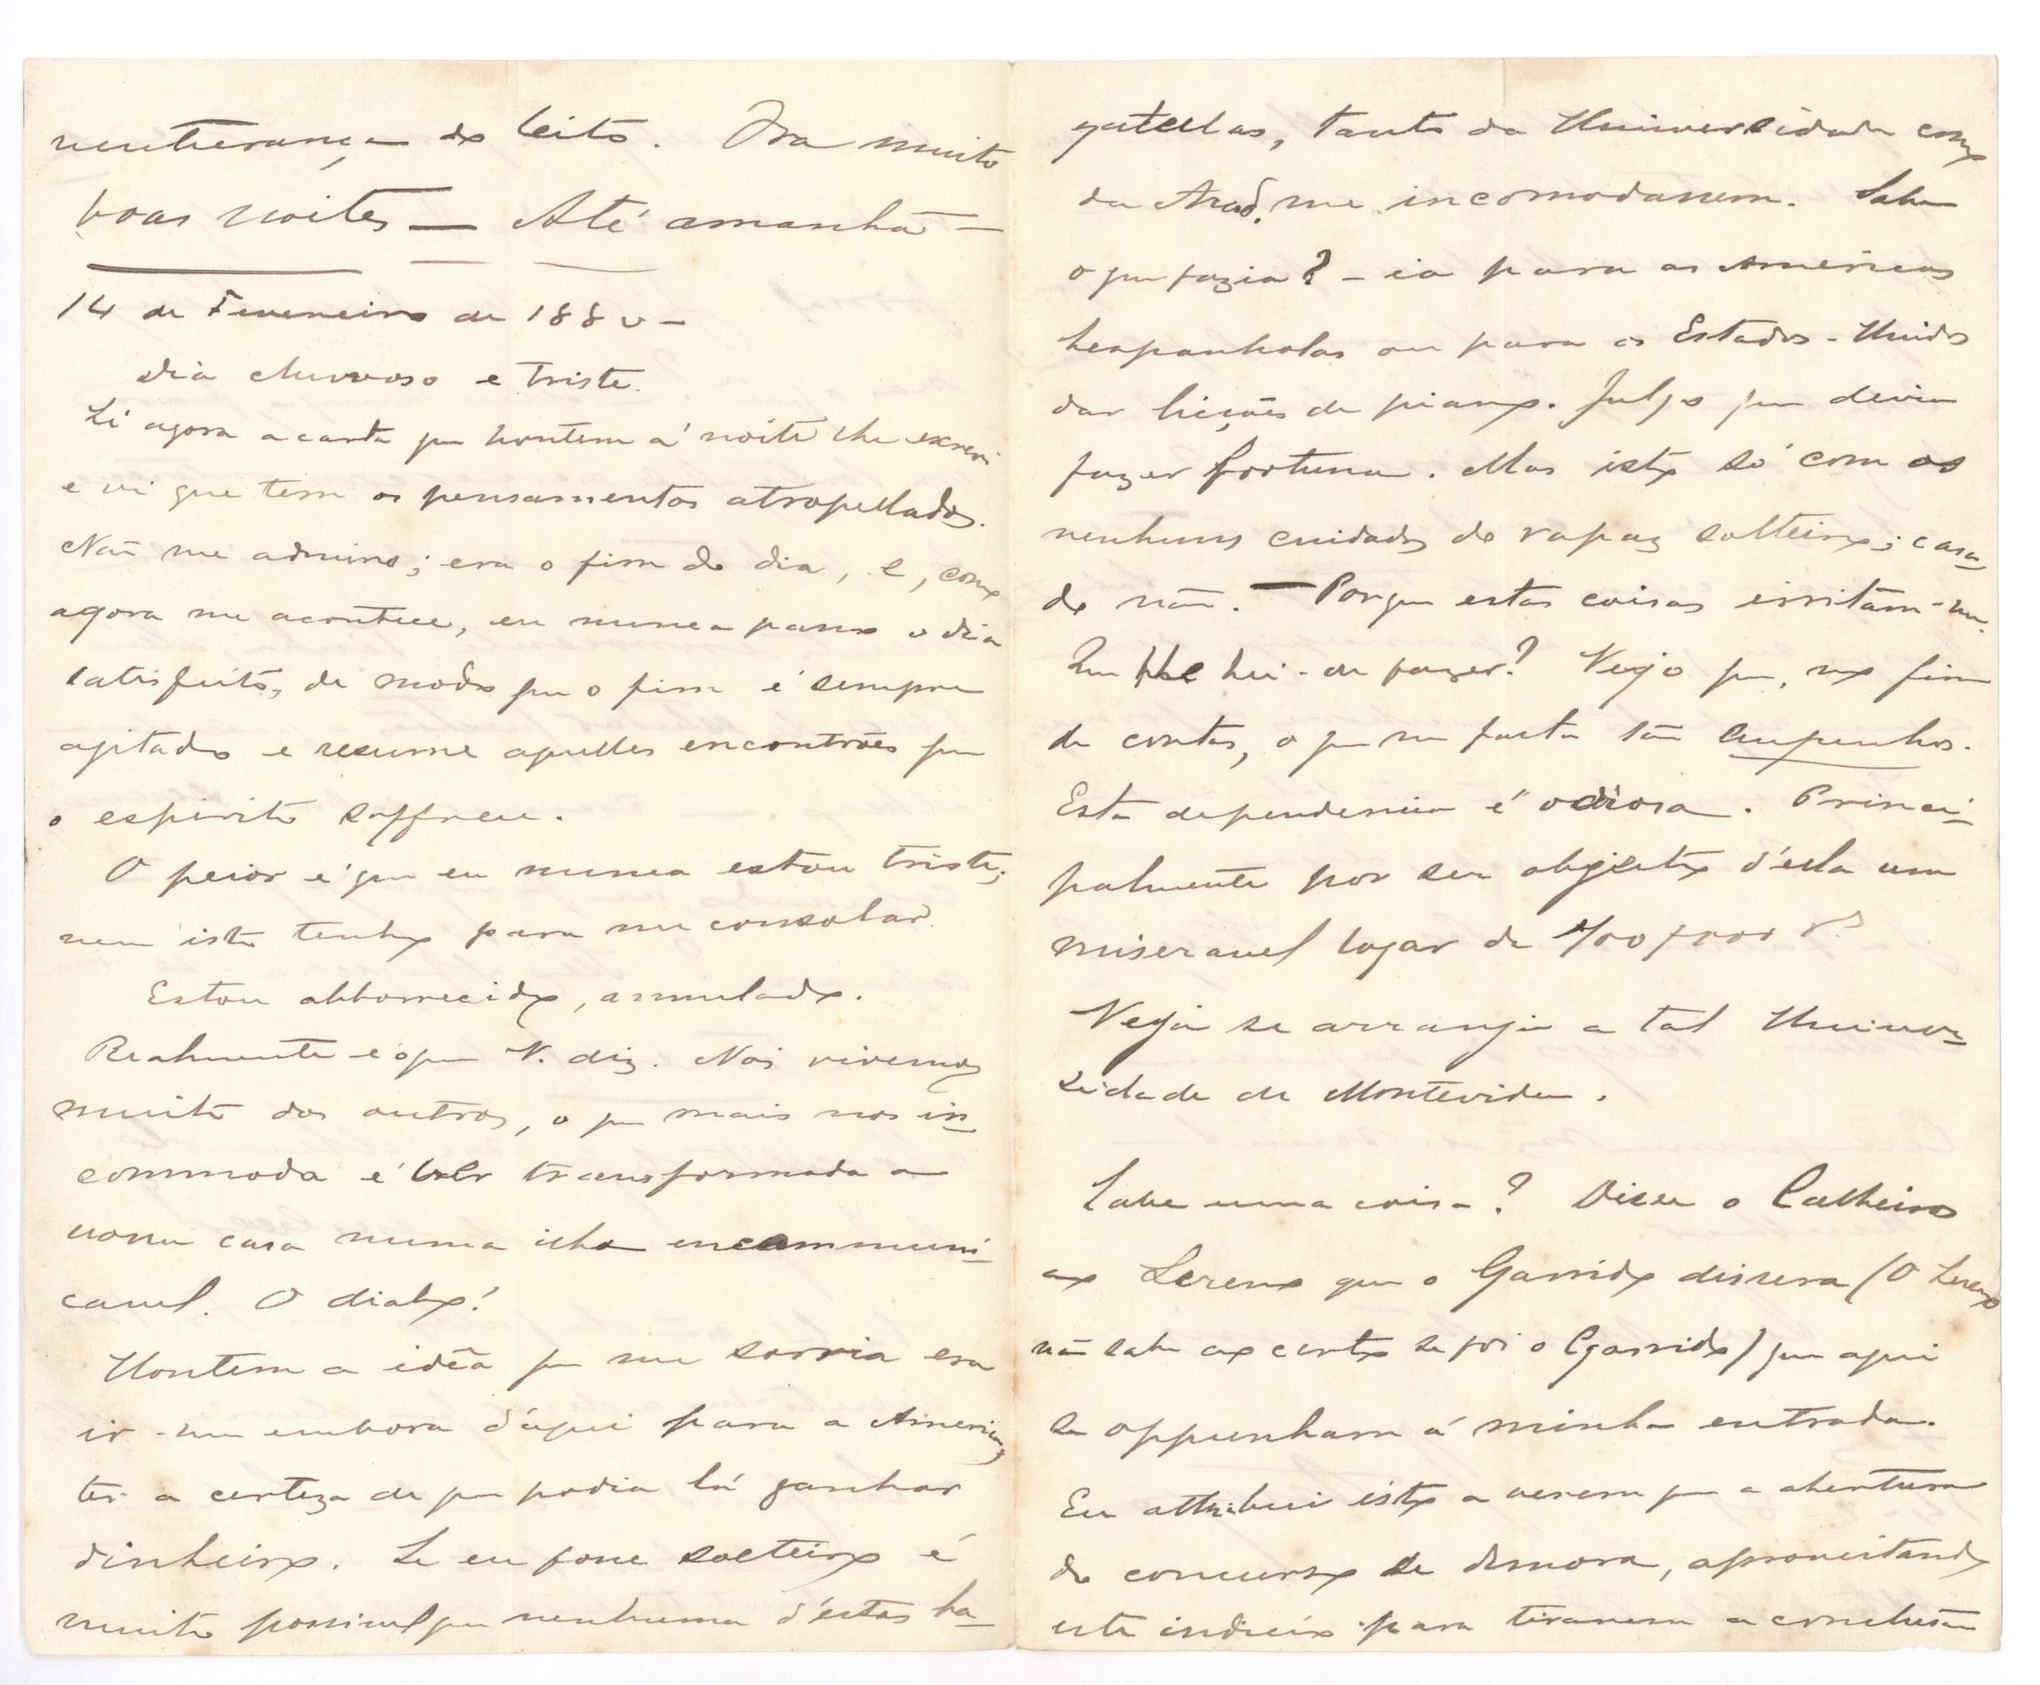 ventrança do leito. Ora muito
boas noites — Até amanhã —
14 de Fevereiro de 1880 —
Dia chuvoso e triste.
Li agora a carta que hontem á noite lhe escrevi
e vi que tem os pensamentos atropellados.
Não me admiro; era o fim do dia, e, como
agora me acontece, eu nunca passo o dia
satisfeito, de modo que o fim é sempre
agitado e resume aquelles encontrões que
o espirito soffreu.
O peior é que eu nunca estou triste;
nem isto tenho para me consolar.
Estou abborrecido, annulado.
Realmente é o que V. diz. Nós vivemos
muito dos outros, o que mais nos in-
commoda é ver transformada a
nossa casa numa ilha encommuni-
cavel. O diabo!
Hontem a idêa que me sorria era
ir-me embora d'aqui para a America,
ter a certeza de que podia lá ganhar
dinheiro. Se eu fosse solteiro é
muito possivel que nenhuma d'estas ba-
gatellas, tanto da Universidade como
da Acad. me incomodassem. Sabe
o que fazia? — ia para as Americas
hespanholas ou para os Estados-Unidos
dar licções de piano. Julgo que devia
fazer fortuna. Mas isto só com os
nenhuns cuidados de rapaz solteiro; casa-
do não. — Porque estas coisas irritam-me.
Que lhe hei-de fazer? Vejo que, no fim
de contas, o que me falta são empenhos.
Esta dependencia é odiosa. Princi-
palmente por ser objecto d'ella um
miseravel logar de 400$000 rs
Veja se arranja a tal Univer-
sidade de Montevideu.
Sabe uma coisa? Disse o Calheiros
ao Sereno que o Garrido dissera (O Sereno
não sabe ao certo se foi o Garrido) que aqui
se oppunham á minha entrada.
Eu attribui isto a verem que a abertura
do concurso se demora, aproveitando
este indicio para tirarem a conclusão